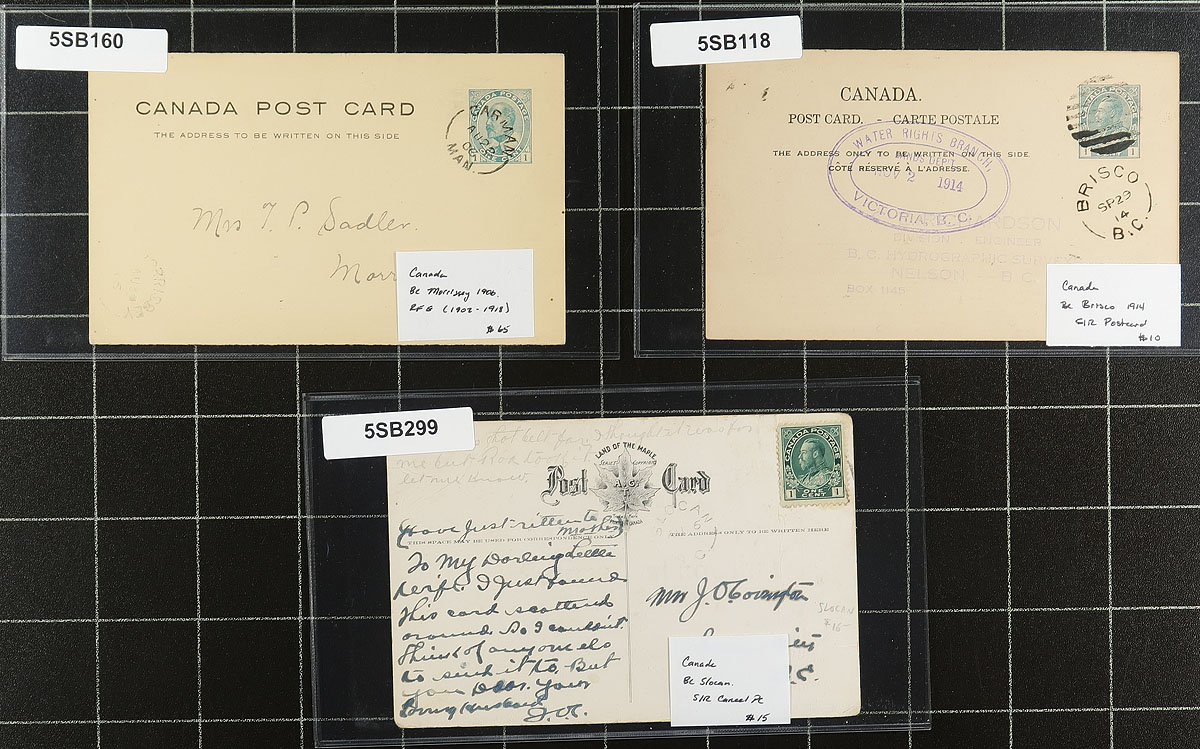 5SB160
CANADA POST CARD
THE ADDRESS TO BE WRITTEN ON THIS SIDE
CANADA POSTAGE
1 ONE CENT 1
CARMAN
AU 22
06
MAN.
Mrs T. P. Sadler.
Morr
Canada
BC Morrissey 1906.
RF G (1902-1918)
$65
5SB118
CANADA.
POST CARD. - CARTE POSTALE
THE ADDRESS ONLY TO BE WRITTEN ON THIS SIDE
COTÉ RÉSERVÉ À L'ADRESSE.
CANADA POSTAGE
WATER RIGHTS BRANCH,
LANDS DEPT.
NOV 2 1914
VICTORIA, B. C.
BRISCO
SP 29
14
B.C.
RDSON
DIVISION ENGINEER
B. C. HYDROGRAPHIC SURVEY
NELSON B. C.
BOX 1145
Canada
BC Brisco 1914
S/R Postcard
$10
5SB299
me but
let me know.
LAND OF THE MAPLE
Post Card
CANADA POSTAGE
1 ONE CENT 1
Have just ritten to
Mother
THIS SPACE MAY BE USED FOR CORRESPONDENCE ONLY
THE ADDRESS ONLY TO BE WRITTEN HERE
To My Darling Little
Wife. I Just found
This card scattend
around So I couldint
Think of anyone els
to send it to. But
you Dear. your
loving Husband
J.O.C.
Mrs J. O. Covington
SLOCAN
$15-
Canada
BC Slocan.
S/R Cancel PC
$15